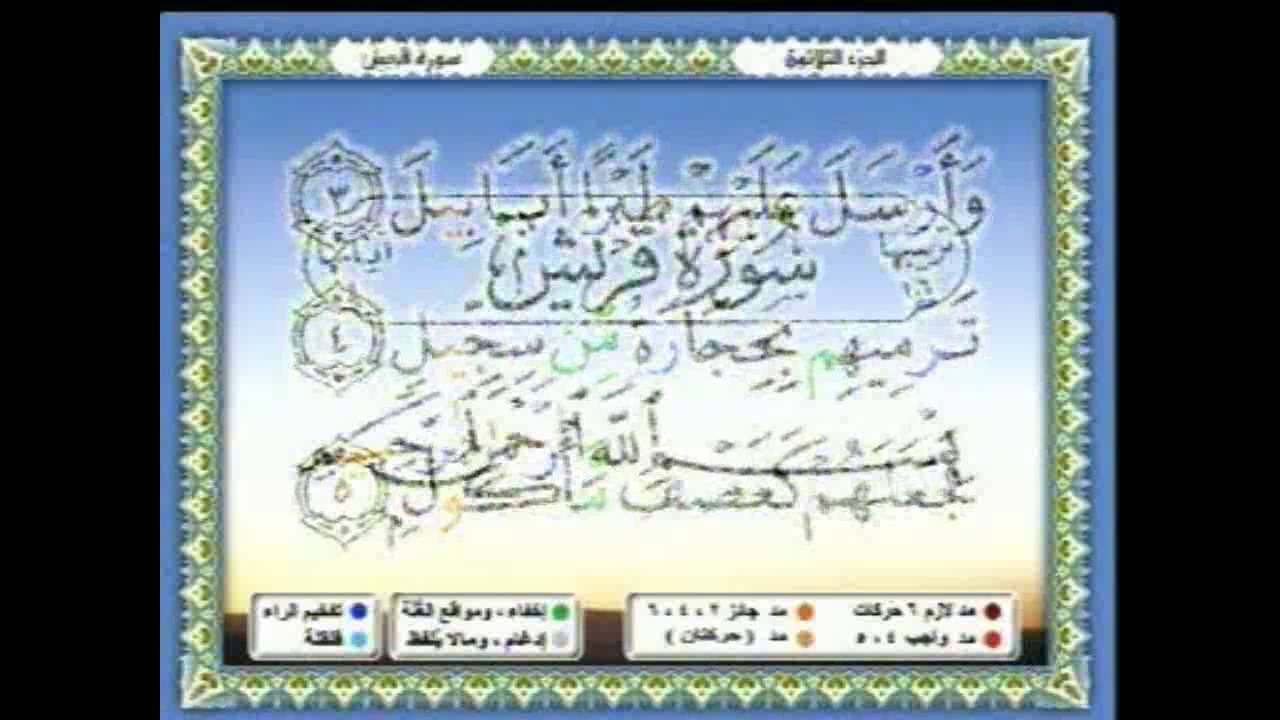 الجزء الثلاثون سورة الفيل
وَأَرْسَلَ عَلَيْهِمْ طَيْرًا أَبَابِيلَ ٣
ترتيبها ١٠٦ سُورَةُ قُرَيْشٍ آياتها
تَرْمِيهِم بِحِجَارَةٍ مِّن سِجِّيلٍ ٤
بِسْمِ اللَّهِ الرَّحْمَٰنِ الرَّحِيمِ
فَجَعَلَهُمْ كَعَصْفٍ مَّأْكُولٍ ٥
مد لازم ٦ حركات مد جائز ٢ ، ٤ ، ٦ إخفاء ، ومواقع الغنة تفخيم الراء
مد واجب ٤ ، ٥ مد ( حركتان ) إدغام ، ومالا يلفظ قلقلة